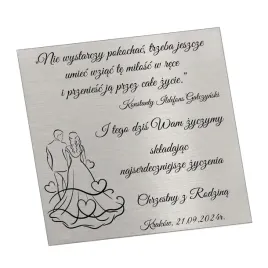 „Nie wystarczy pokochać, trzeba jeszcze
umieć wziąć tę miłość w ręce
i przenieść ją przez całe życie."
Konstanty Ildefons Gałczyński
I tego dziś Wam życzymy
składając
najserdeczniejsze życzenia
Chrzestny z Rodziną
Kraków, 21.09.2024r.